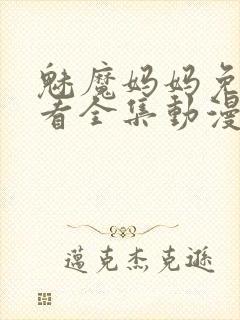 魅魔妈妈免
看全集動漫
邁克杰克遜